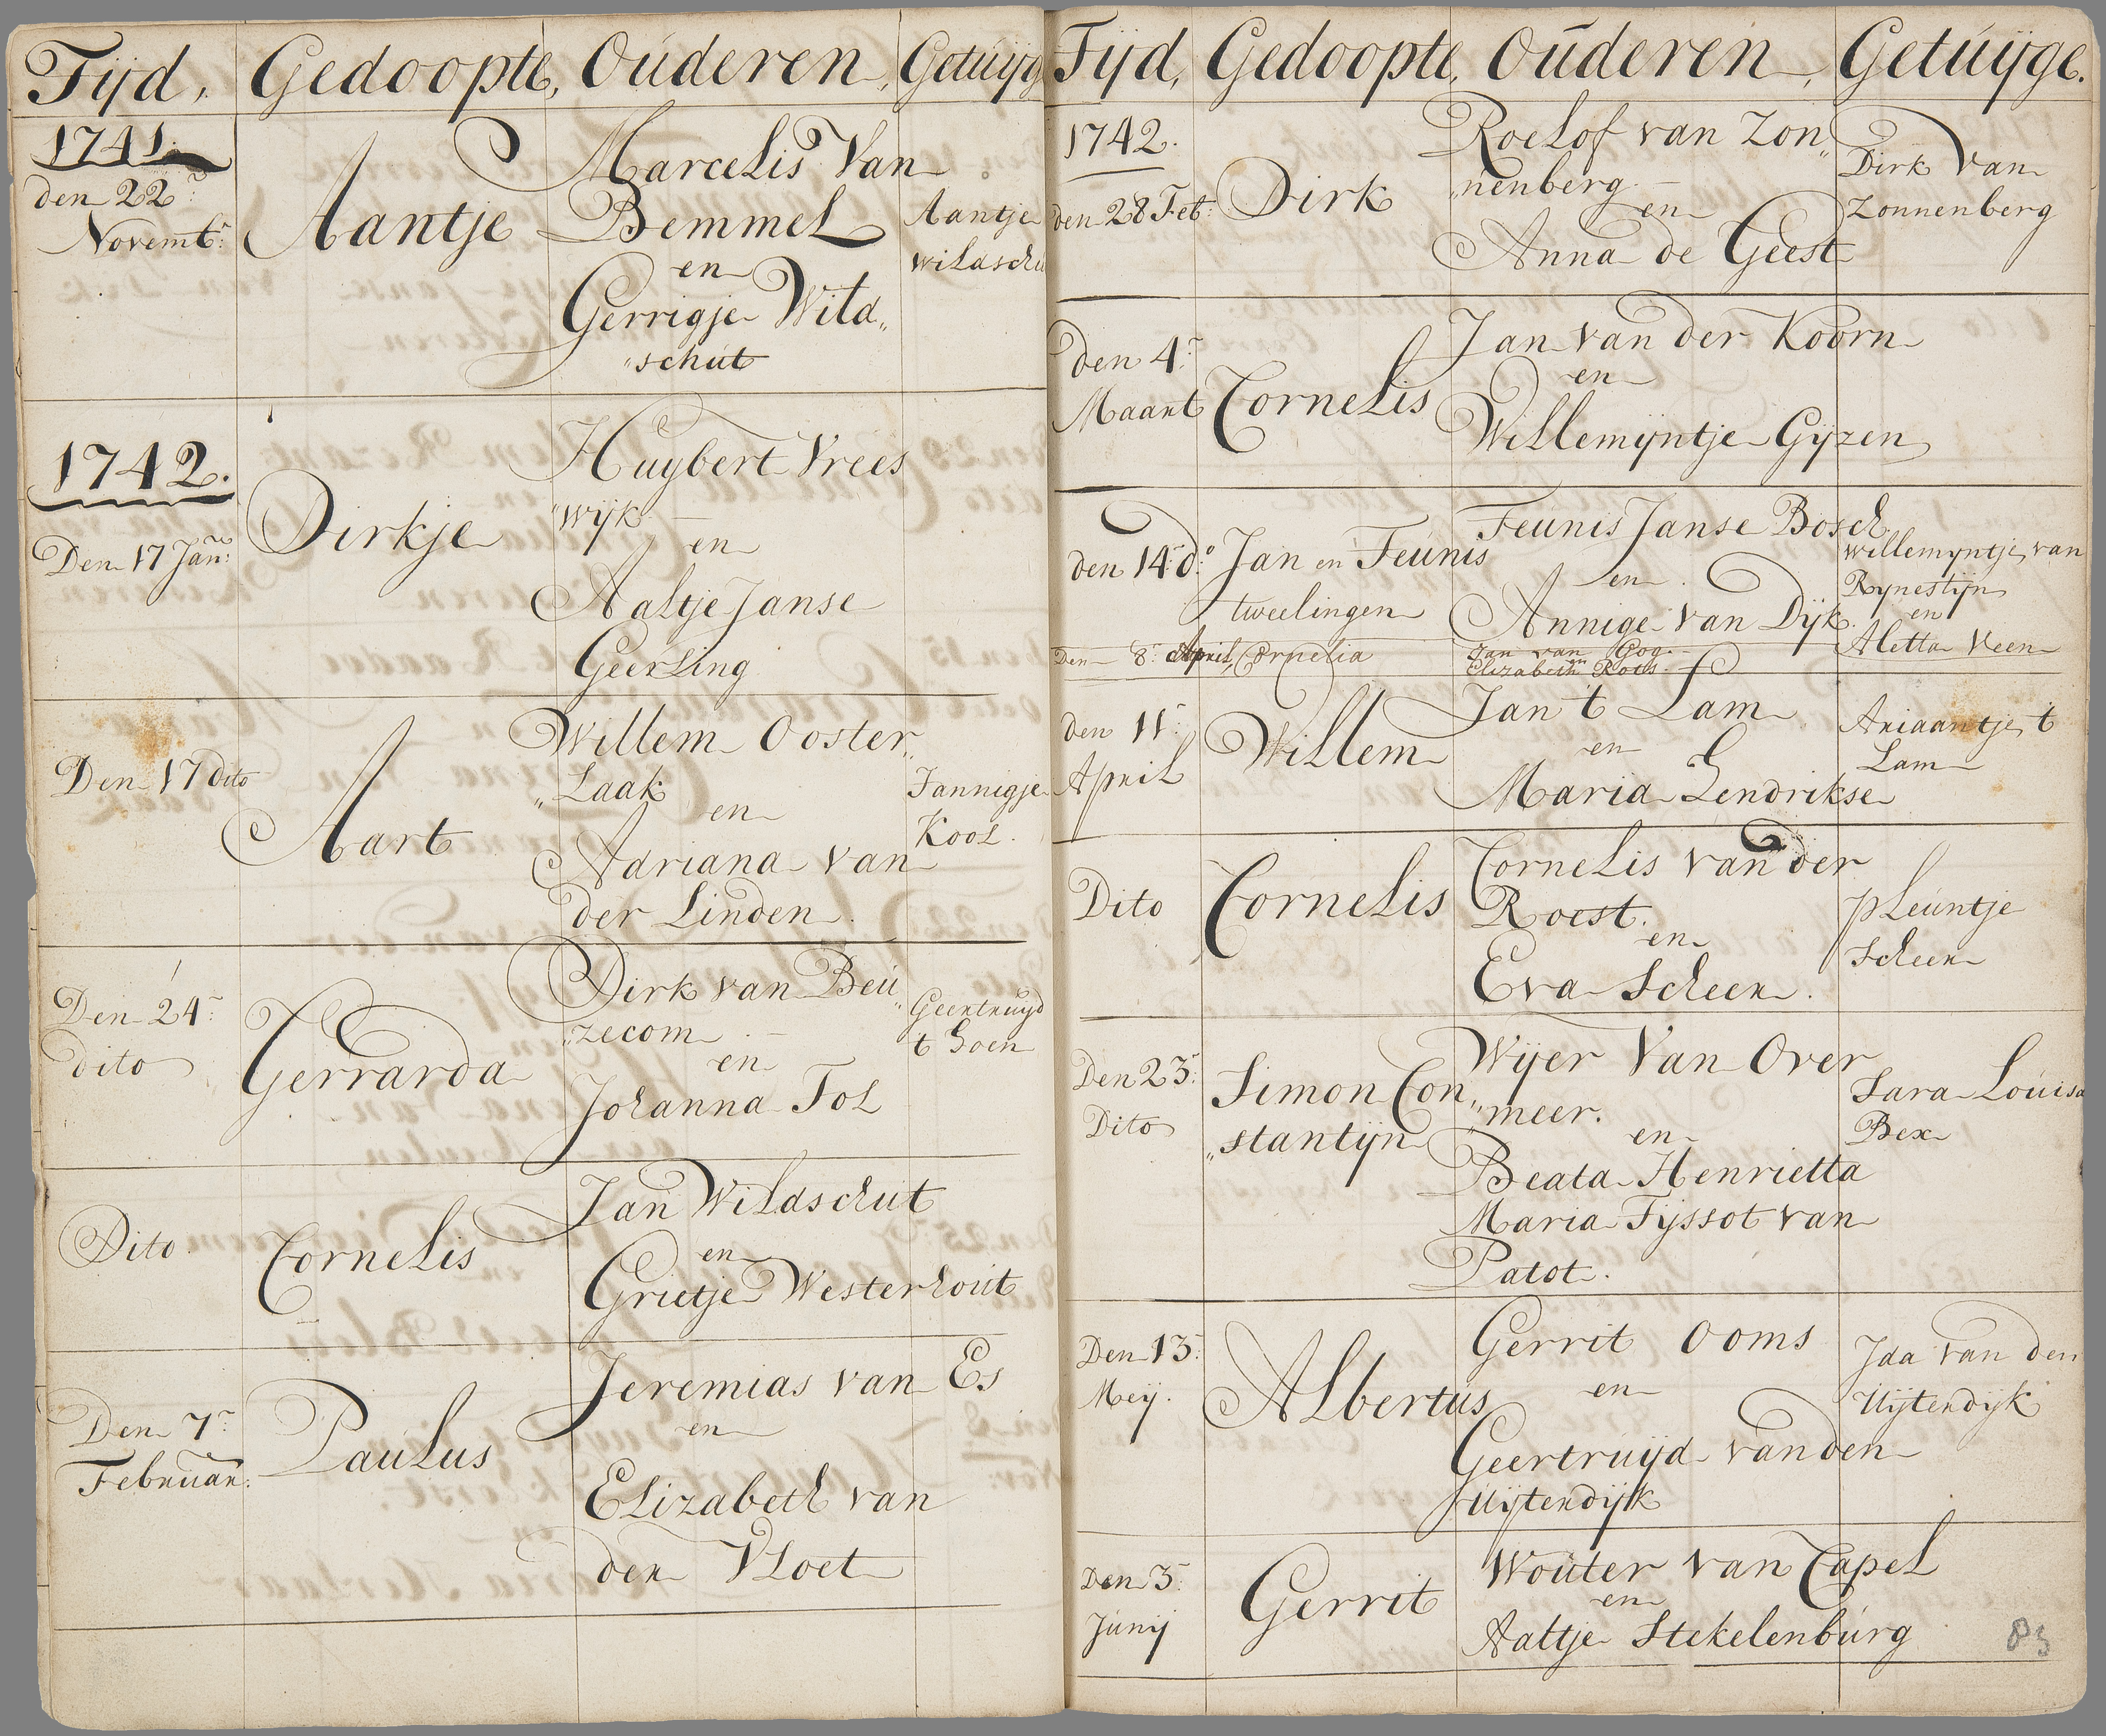 Tijd, Gedoopte, Oúderen, Getúijg
1741.
den 22
Novemb:
Aantje
Marcelis Van
Bemmel
en
Gerrigje Wild„
„schút
Aantje
wildschu
1742.
Den 17 Jan:
Dirkje
Huybert Vrees
„wijk
en
Aaltje Janse
Geerling
Den 17 dito
Aart
Willem Ooster„
„Laak
en
Adriana van
der Linden
Jannigje
Kool.
Den 24:
dito
Gerrarda
Dirk van Beú„
„zecom
en
Johanna Tol
Geertruyd
t Hoen
Dito
Cornelis
Jan Wildschut
en
Grietje Westerhoút
Den 7
Februar:
Paúlus
Jeremias van Es
en
Elizabeth van
der Vloet
Tijd, Gedoopte, Oúderen, Getúijge.
1742.
den 28 Feb:
Dirk
Roelof van Zon„
„nenberg
en
Anna de Geest
Dirk Van
Zonnenberg
den 4:
Maart
Cornelis
Jan van der Koorn
en
Willemijntje Gijzen
den 14 do:
Jan en Teúnis
tweelingen
Teúnis Janse Bosch
en
Annige van Dijk.
Willemyntje van
Rynestijn
en
Aletta Veen
Den 8: April, Cornelia
Jan van Gog.
en
Elizabeth Roos.
den 11:
April
Willem
Jan t Lam
en
Maria Hendrikse
Ariaantje t
Lam
Dito
Cornelis
Cornelis van der
Roest.
en
Eva Scheer.
pleúntje
Scheer
Den 23:
Dito
Simon Con„
„stantijn
Wijer Van Over
„meer.
en
Beata Henrietta
Maria Tijssot van
Patot.
Sara Loúisa
Bex
Den 13:
Meij.
Albertús
Gerrit Ooms
en
Geertruijd van den
Uijtendijk
Jda van den
Uijtendijk
Den 3:
Júnij
Gerrit
Woúter van Capel
en
Aaltje Stekelenbúrg
83